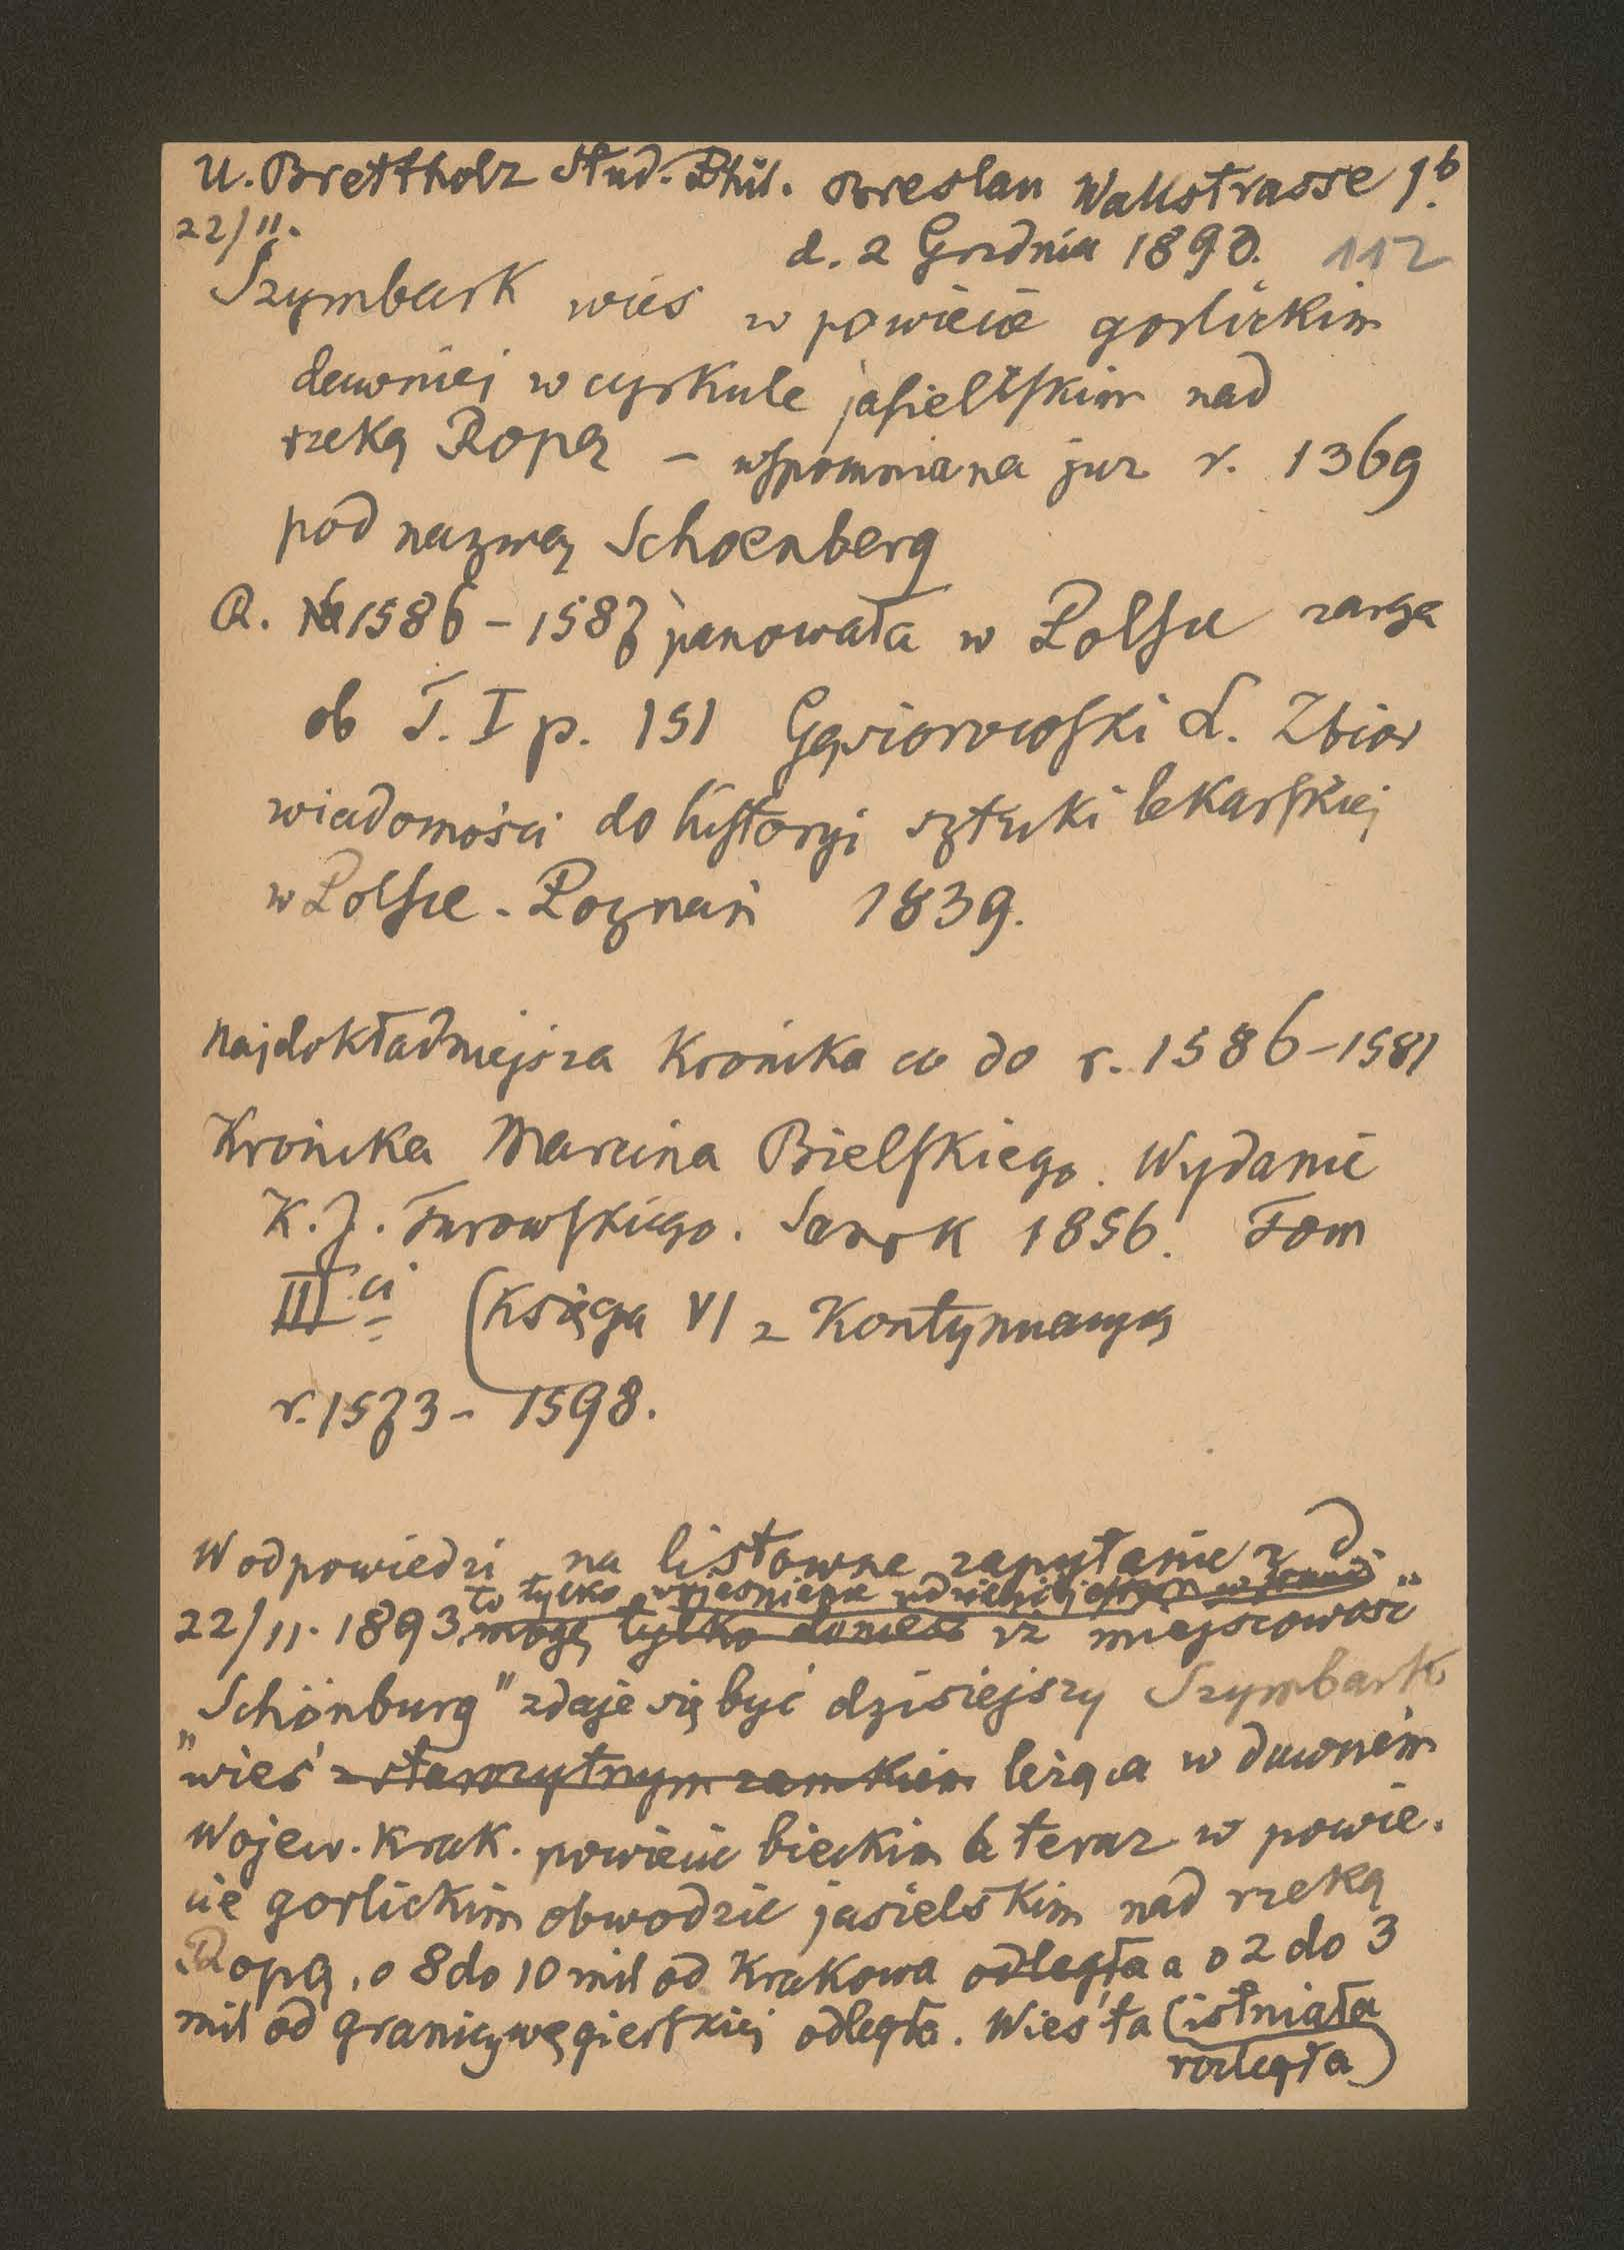 U. Brettholz Stud. Phil. Breslau Wallstrasse 1b.
22/11. d. 2 Grudnia 1893. 112
Szymbark wieś w powiecie gorlickim
dawniej w cyrkule jasielskim nad
rzeką Ropą – wspomniana już r. 1369
pod nazwą Schoenberg
R. 1586 – 1587 panowała w Polsce zaraza
ob T. I p. 151 Gąsiorowski L. Zbior
wiadomości do historyi sztuki lekarskiej
w Polsce. Poznań 1839.
Najdokładniejsza Kronika co do r. 1586–1581
Kronika Marcina Bielskiego. Wydanie
K. J. Turowskiego. Sanok 1856. Tom
III ci (Księga VI z Kontynuacyą
r. 1573 – 1598.
W odpowiedzi na listowne zapytanie z d
to tylko wyjaśnienie udzielić
22/11. 1893 mogę tylko donieść iż miejscowość
„Schönburg" zdaje się być dzisiejszy Szymbark
"wieś z starożytnym zamkiem leżąca w dawném
Wojew. Krak. powiecie bieckim a teraz w powie.
cie gorlickim obwodzie jasielskim nad rzeką
Ropą, o 8 do 10 mil od Krakowa odległa a o 2 do 3
mil od granicy węgierskiej odległa. Wieś ta (istniała
rozległa)